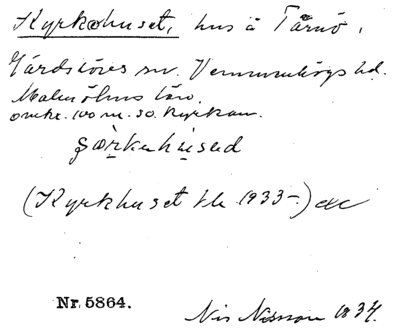 Kyrkohuset, hus å Tärnö,
Gärdslövs sn. Vemmenhögs hd.
Malmöhus län.
omkr. 100 m. so. kyrkan.
(Kyrkhuset 1933-)
Nr. 5864.
Nils Nilsson 1934.